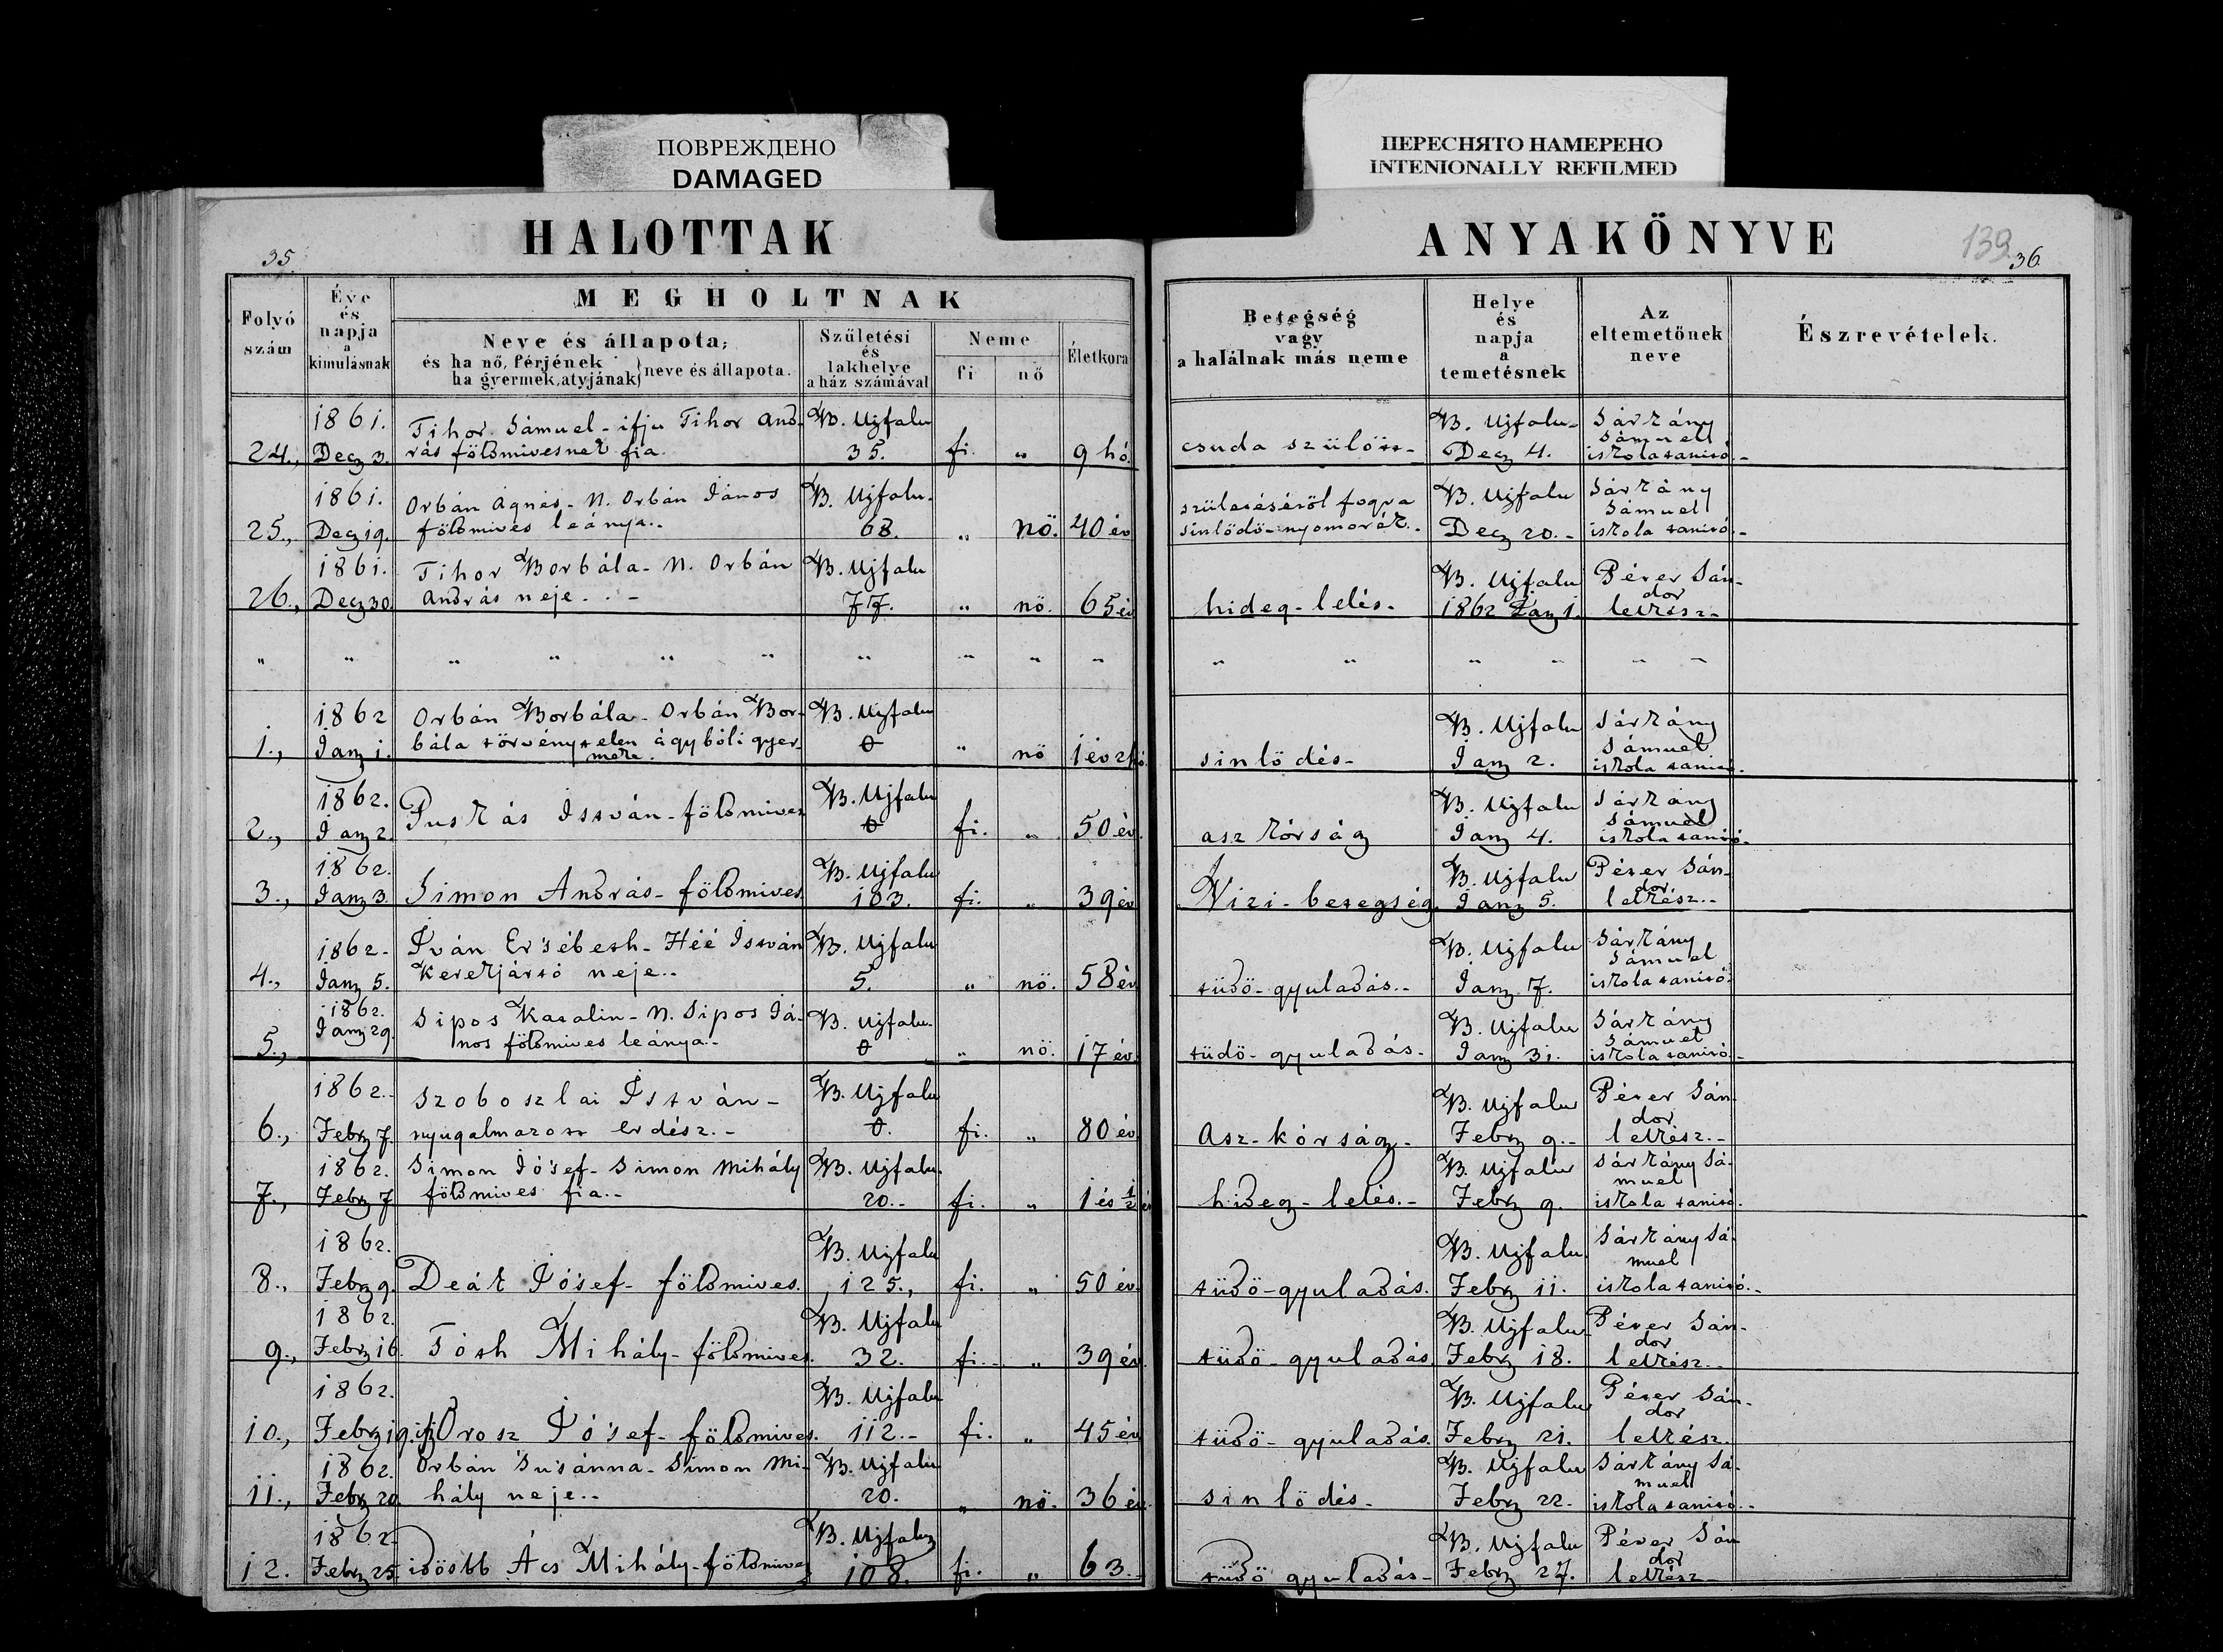 ПОВРЕЖДЕНО
DAMAGED
ПЕРЕСНЯТО НАМЕРЕНО
INTENIONALLY REFILMED
HALOTTAK
ANYAKÖNYVE
35.
139
36.
Folyó szám
Éve és napja a kimulásnak
MEGHOLTNAK
Neve és állapota;
és ha nő, férjének
ha gyermek, atyjának} neve és állapota.
Születési és lakhelye a ház számával
Neme
fi
nő
Életkora
Betegség vagy a halálnak más neme
Helye és napja a temetésnek
Az eltemetőnek neve
Észrevételek.
24., 1861. Decz 3. Tihor Sámuel - ifju Tihor And-
rás földmivesnek fia. B. Ujfalu 35. fi. „ 9 hó. csuda szülött - B. Ujfalu - Decz 4. Sárkány Sámuel iskolatanitó -
25., 1861. Decz 19. Orbán Ágnes - N. Orbán János
földmives leánya.. B. Ujfalu. 68. „ nö. 40 év születéséröl fogva sinlödö - nyomorék.. B. Ujfalu Decz 20. - Sárkány Sámuel iskola tanitó. -
26., 1861. Decz 30. Tihor Borbála - N. Orbán
András neje. . - B. Ujfalu 77. „ nö. 65 év hideg - lelés - B. Ujfalu 1862 Jan 1. Péter Sándor lelkész -
„ „ „ „ „ „ „ „ „ „ „ „ „ „ „ „
1., 1862 Jan 1. Orbán Borbála - Orbán Bor-
bála törvénytelen ágybóli gyer-
meke. B. Ujfalu 0 „ nö 1 év 2 hó. sinlödés - B. Ujfalu Jan 2. Sárkány Sámuel iskola tanitó.
2., 1862. Jan 2. Puskás István - földmives B. Ujfalu 0 fi. „ 50 év. aszkórság B. Ujfalu Jan 4. Sárkány Sámuel iskola tanitó.
3., 1862. Jan 3. Simon András - földmives. B. Ujfalu 103. fi. „ 39 év Vizi - betegség. B. Ujfalu Jan 5. Péter Sándor lelkész. -
4., 1862 - Jan 5. Iván Ersébeth - Héé István
Kerekjártó neje.. B. Ujfalu 5. „ nö. 58 év tüdö - gyuladás. - B. Ujfalu Jan 7. Sárkány Sámuel iskola tanitó.
5., 1862. Jan 29. Sipos Katalin - N. Sipos Já-
nos földmives leánya.- B. Ujfalu. 0 „ nö. 17 év. tüdö - gyuladás - B. Ujfalu Jan 31. Sárkány Sámuel iskola tanitó -
6., 1862. - Febr 7. Szoboszlai István -
nyugalmazott erdész. - B. Ujfalu 0. fi. „ 80 év. Asz - kórság - B. Ujfalu Febr 9. - Péter Sándor lelkész. -
7., 1862. Febr 7 Simon Jósef - Simon Mihály
földmives fia. - B. Ujfalu. 20. - fi. „ 1 és 1/2 év hideg - lelés. - B. Ujfalu Febr 9. Sárkány Sámuel iskola tanitó.
8., 1862. Febr 9. Deák Jósef - földmives. B. Ujfalu 125., fi. „ 50 év. tüdö - gyuladás. B. Ujfalu. Febr 11. Sárkány Sámuel iskola tanitó. -
9., 1862. Febr 16. Tóth Mihály - földmives. B. Ujfalu 32. fi. - „ 39 év. tüdö - gyuladás B. Ujfalu Febr 18. Péter Sándor lelkész. -
10., 1862. Febr 19. ifj Orosz Jósef - földmives. B. Ujfalu 112. - fi. „ 45 év tüdö - gyuladás. B. Ujfalu Febr 21. Péter Sándor lelkész.
11., 1862. Febr 20. Orbán Susánna - Simon Mi-
hály neje.. B. Ujfalu 20. „ nö. 36 év. sinlödés - B. Ujfalu Febr 22. Sárkány Sámuel iskola tanitó. -
12. 1862. Febr 25. idöstb Ács Mihály - földmives B. Ujfalu 108. fi. „ 63. - tüdö gyuladás - B. Ujfalu Febr 27. Péter Sándor lelkész -